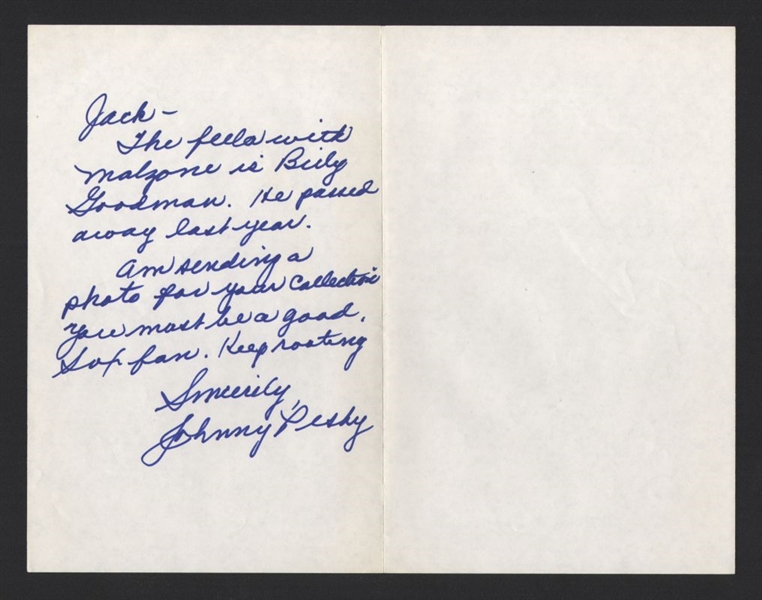 Jack -
The fella with
Malzone is Billy
Goodman. He passed
away last year.
Am sending a
photo for your collection
You must be a good,
Sox fan. Keep rooting
Sincerely,
Johnny Pesky